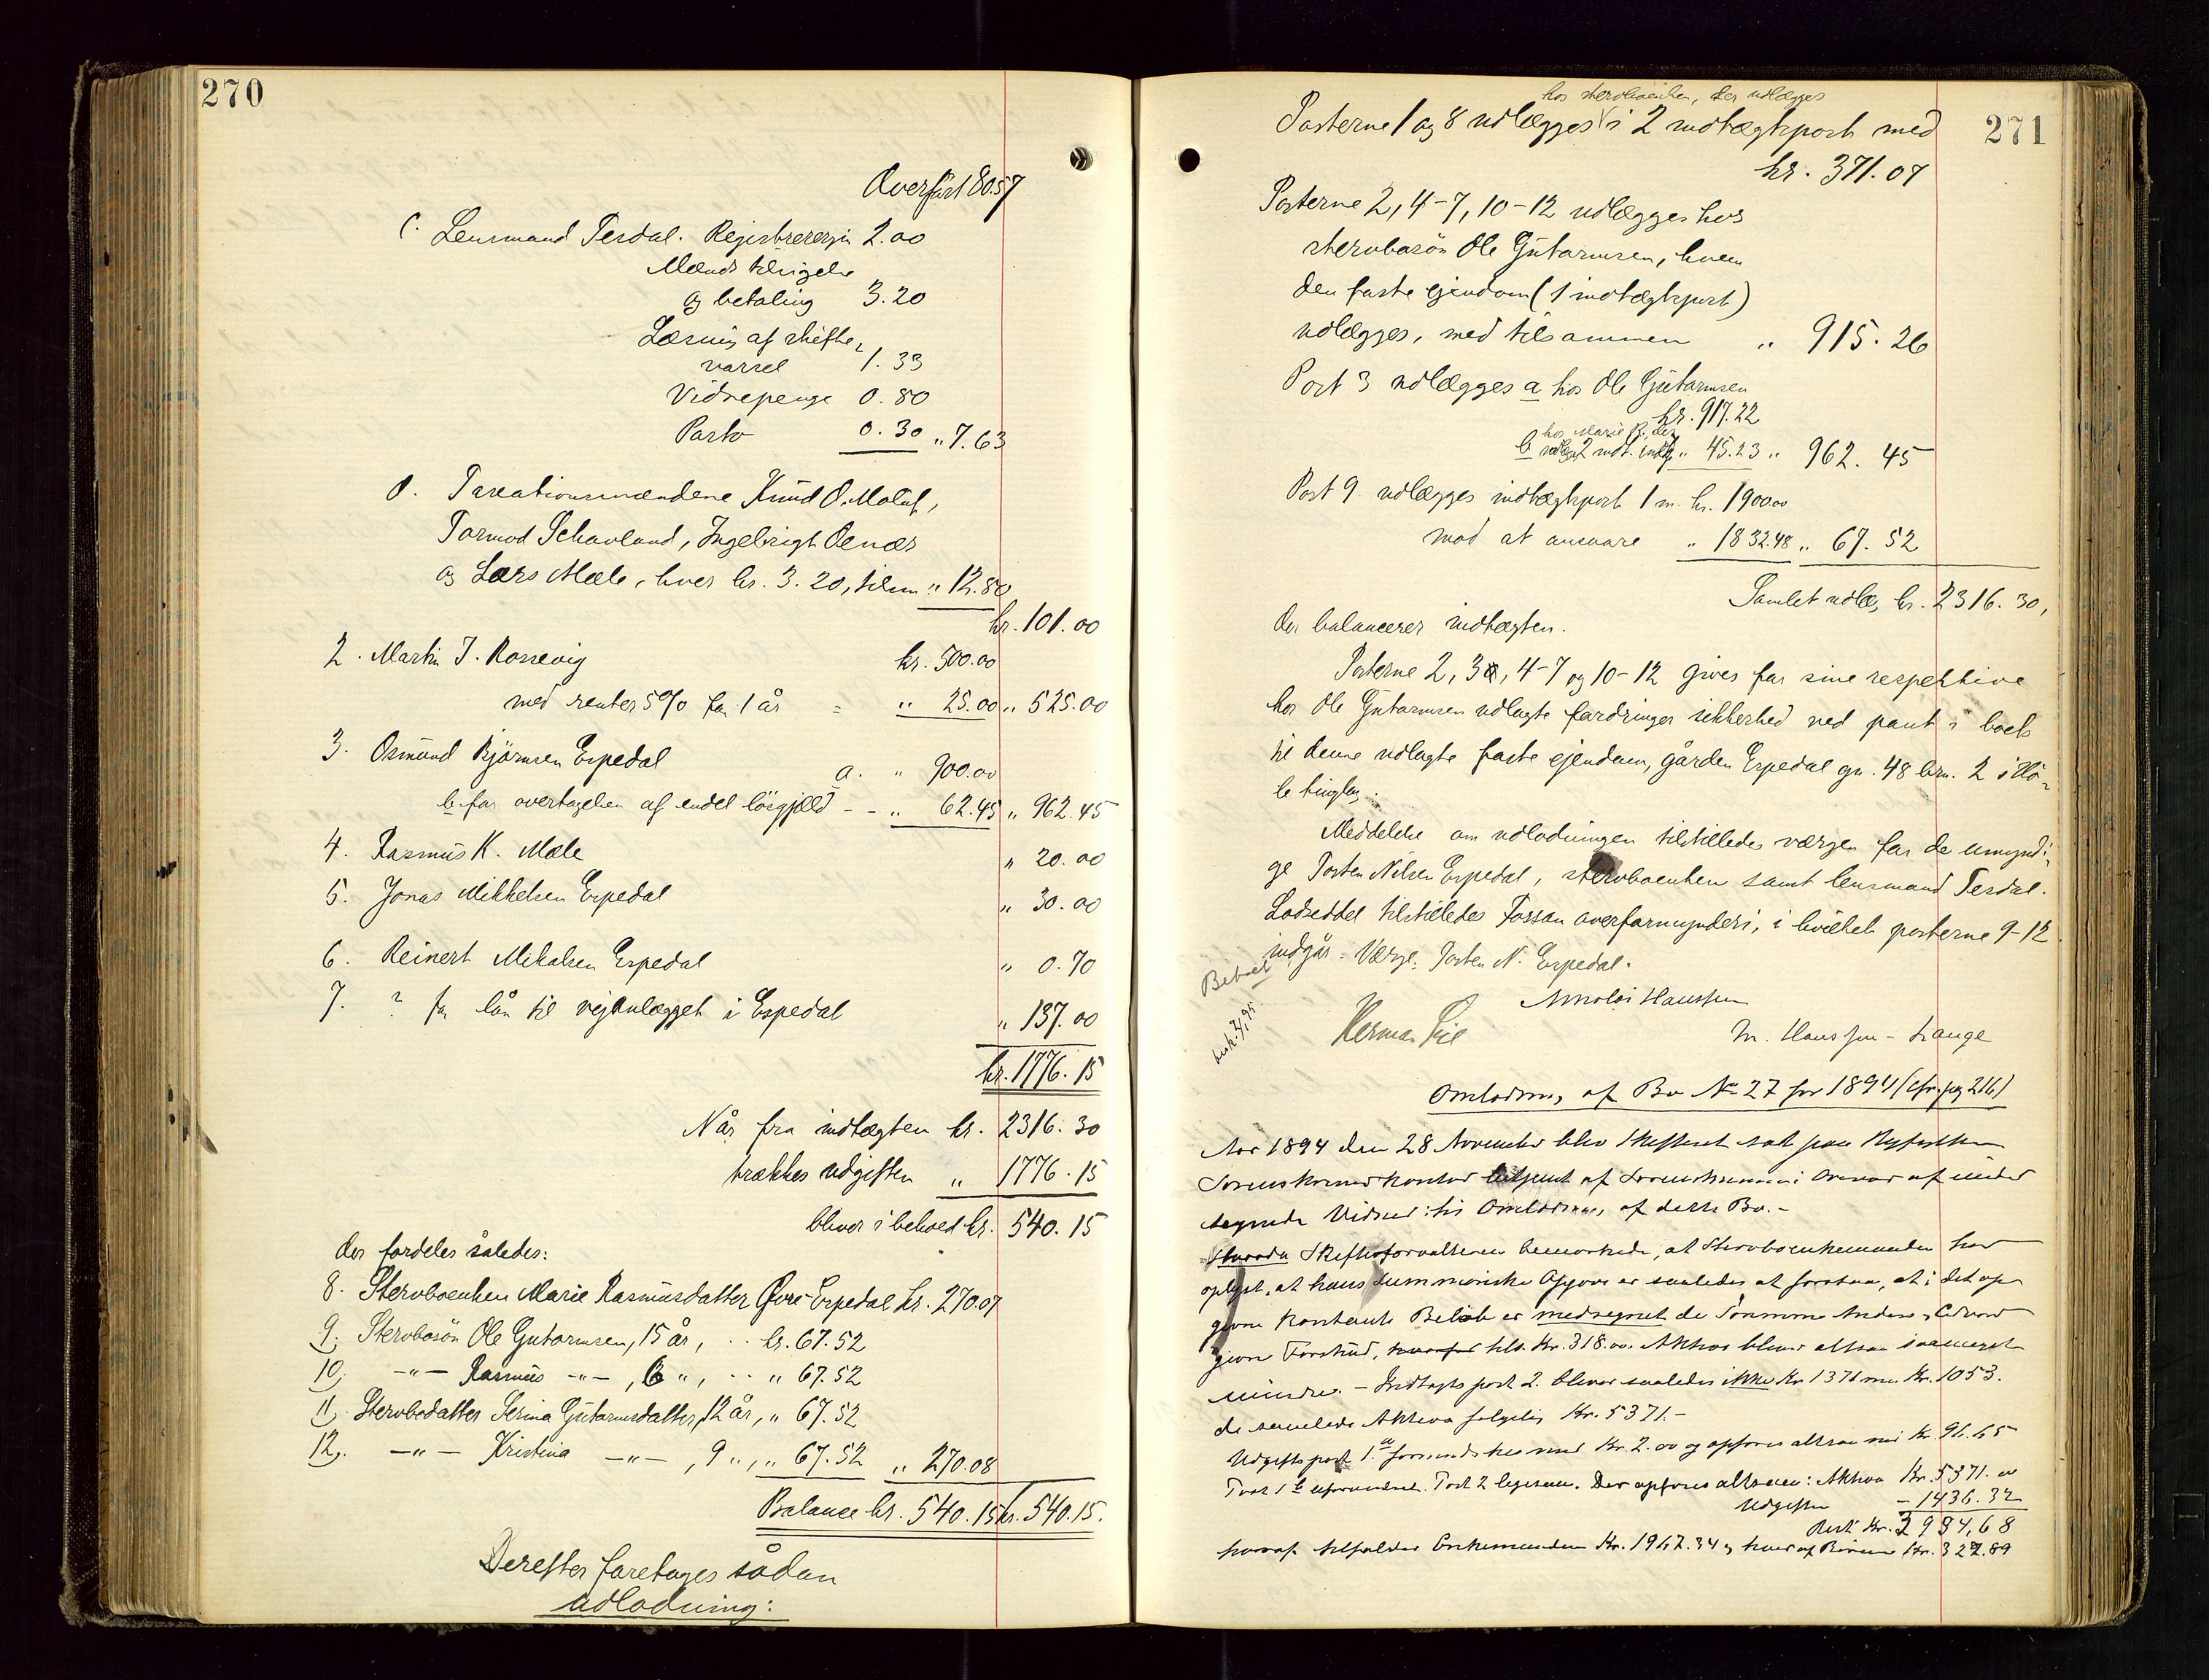 270
Overført 80.57
C. Lensmand Tesdal. Registrerergjn 2.00
Mænds tilsigelse
og betaling 3.20
Læsning af skifte,
varsel 1.33
Vidnepenge 0.80
Porto 0.30 " 7.63
d. Taxationsmændene Knud O. Molaug,
Tormod Schavland, Ingebrigt Oenæs
og Lars Mæle, hver kr. 3.20, tilsm " 12.80
kr. 101.00
2. Martin T. Rossevig kr. 500.00
med renter 5% for 1 år " 25.00 " 525.00
3. Osmund Bjørnsen Espedal a. " 900.00
b. for overtagelsen af endel løsgjæld - - " 62.45 " 962.45
4. Rasmus K. Mæle " 20.00
5. Jonas Mikkelsen Espedal " 30.00
6. Reinert Mikalsen Espedal " 0.70
7. ? for lån til vejanlægget i Espedal " 137.00
kr. 1776.15
Når fra indtægten kr. 2316.30
trækkes udgiften " 1776.15
bliver i behold kr. 540.15
der fordeles således:
8. Stervboenken Marie Rasmusdatter Øvre-Espedal kr. 270.07
9. Stervbosøn Ole Gutormsen, 15 år, .. kr. 67.52
10. -"- Rasmus -"- , 6 ", .. " 67.52
11. Stervbodatter Serina Gutormsdatter, 12 år, " 67.52
12. -"- Kristina -"- , 9 ", " 67.52 " 270.08
Balance kr. 540.15 kr. 540.15.
Derefter foretages sådan
udlodning:
271
hos stervboenken, der udlægges
Posterne 1 og 8 udlægges i 2 indtægtspost med
kr. 371.07
Posterne 2, 4-7, 10-12 udlægges hos
stervbosøn Ole Gutormsen, hvem
den faste ejendom (1 indtægtspost)
udlægges, med tilsammen " 915.26
Post 3 udlægges a hos Ole Gutormsen
kr. 917.22
hos Marie R., der
b udlægs 2 indt. " 45.23 " 962.45
Post 9 udlægges indtægtspost 1 m. kr. 1900.00
mod at ansvare " 1832.48 " 67.52
Samlet udlæg kr. 2316.30,
der balancerer indtægten.
Posterne 2, 3a, 4-7 og 10-12 gives for sine respektive
hos Ole Gutormsen udlagte fordringer sikkerhed ved pant i boets
til denne udlagte faste ejendom, gården Espedal gn. 48 brn. 2 i Hø-
le tinglag.
Meddelelse om udlodningen tilstilledes værgen for de umyndi-
ge Torsten Nilsen Espedal, stervboenken samt lensmand Tesdal.
Lodseddel tilstilledes Fossan overformynderi, i hvilket posterne 9-12
indgår. Værge: Torsten N. Espedal.
Arnoldi Hanssen
Herman
M. Hanssen-Lange
Omlodning af Bo No 27 for 1894 (cfr. pag 216)
Aar 1894 den 28 November blev Skifteret sat paa Ryfylke
Sorenskriverkontor betjent af Sorenskriveren i Overvær af under
tegnede Vidner: til Omlodning af dette Bo.-
Hvorda Skifteforvalteren bemærkede, at Stervboenkemanden har
oplyst, at hans summariske Opgave er saaledes at forstaa, at i det op
givne kontante Beløb er medregnet de Sønnerne Anders og Edvard
givne Forskud, tils. Kr. 318.00. Aktiva bliver altsaa saameget
mindre. - Indtægtspost 2. bliver saaledes ikke Kr 1371 men Kr. 1053.
de samlede Aktiva følgelig Kr. 5371.-
Udgiftspost 1.a formindskes med Kr. 2.00 og opføres altsaa med Kr. 96.65
Post 1 b uforandret. Post 2 ligesaa. Der opføres altsaa: Aktiva Kr. 5371.00
Udgiften - 1436.32
Rest Kr. 3934,68
hvoraf tilfalder Enkemanden Kr. 1967.34 og hver af Børnene Kr. 327.89